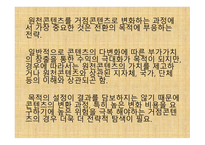 원천콘텐츠를 거점콘텐츠로 변화하는 과정에
서 가장 중요한 것은 전환의 목적에 부응하는
전략.
일반적으로 콘텐츠의 다변화에 따른 부가가치
의 창출을 통한 수익의 극대화가 목적이 되지만,
경우에 따라서는 원천콘텐츠의 가치를 제고하
거나 원천콘텐츠와 상관된 지자체, 국가, 단체
등의 이해와 상관되곤 함.
목적의 설정이 결과를 담보하지는 않기 때문에
콘텐츠의 변화 과정, 특히 높은 변화 비용을 요
구하기에 높은 위험을 극복 해야하는 거점콘텐
츠의 경우 더욱 더 전략적 탐색이 필요.